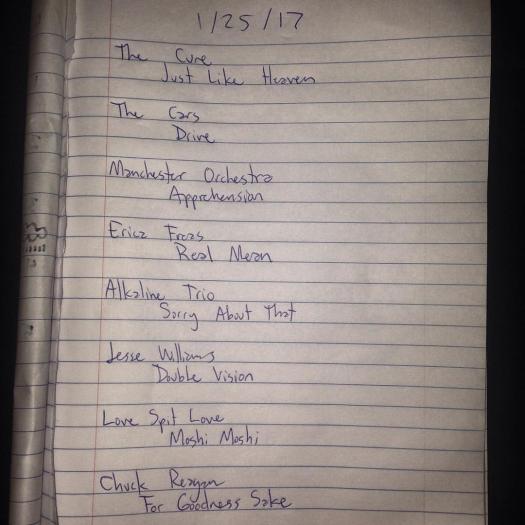 1/25/17
The Cure
Just Like Heaven
The Cars
Drive
Manchester Orchestra
Apprehension
Erica Freas
Real Mean
Alkaline Trio
Sorry About That
Jesse Williams
Double Vision
Love Spit Love
Moshi Moshi
Chuck Reagan
For Goodness Sake